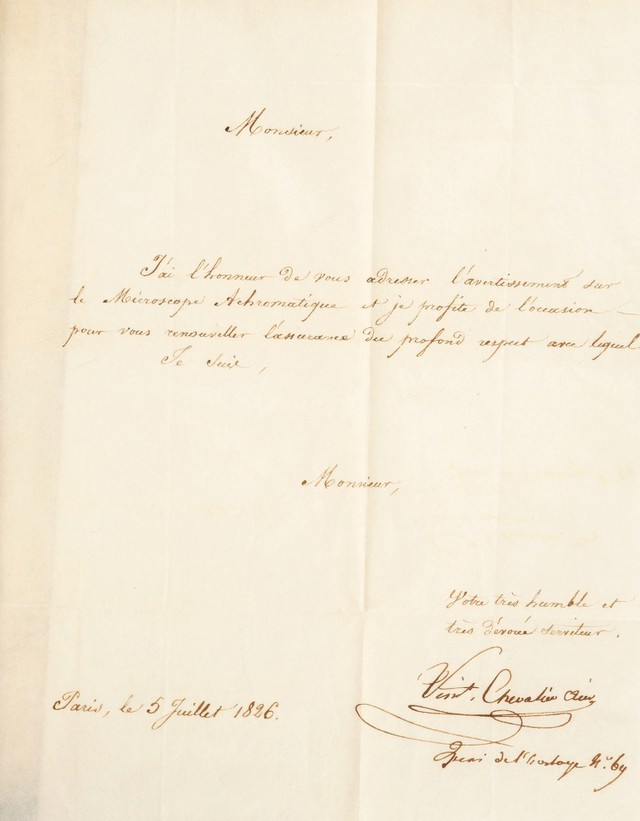 Monsieur,
J'ai l'honneur de vous adresser l'avertissement sur
le Microscope Achromatique et je profite de l'occasion —
pour vous renouveller l'assurance du profond respect avec lequel
Je suis,
Monsieur,
Votre très humble et
très dévoué Serviteur.
Vinct. Chevalier ainé
Paris, le 5 Juillet 1826.
Quai de l'horloge No. 69